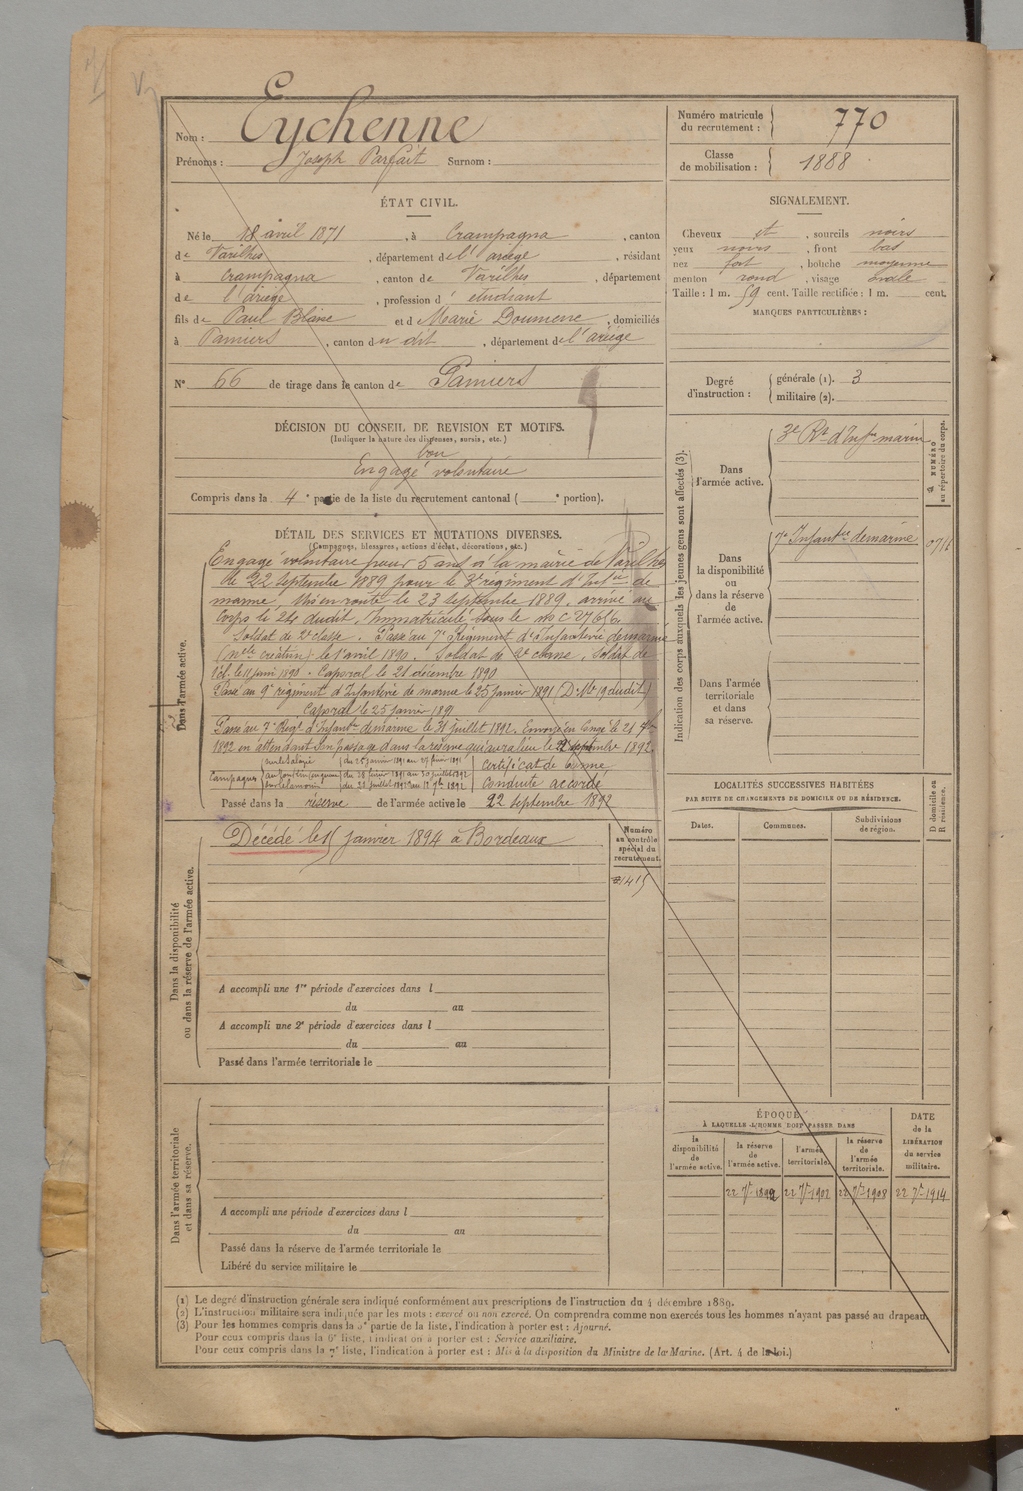 Nom : Eychenne
Prénoms : Joseph Parfait Surnom :
Numéro matricule du recrutement : 770
Classe de mobilisation : 1888
ÉTAT CIVIL.
Né le 18 avril 1871, à Crampagna, canton
de Varilhes, département de l'ariège, résidant
à Crampagna, canton de Varilhes, département
de l'ariège, profession d'étudiant
fils de Paul Blaise et d Marie Doumenc, domiciliés
à Pamiers, canton du dit, département de l'ariège
N° 66 de tirage dans le canton de Pamiers
SIGNALEMENT.
Cheveux et, sourcils noirs
yeux noirs, front bas
nez fort, bouche moyenne
menton rond, visage ovale
Taille : 1 m. 59 cent. Taille rectifiée : 1 m. cent.
MARQUES PARTICULIÈRES :
Degré d'instruction : générale (1). 3
militaire (2).
DÉCISION DU CONSEIL DE REVISION ET MOTIFS.
(Indiquer la nature des dispenses, sursis, etc.)
bon
Engagé volontaire
Compris dans la 4e partie de la liste du recrutement cantonal ( e portion).
DÉTAIL DES SERVICES ET MUTATIONS DIVERSES.
(Campagnes, blessures, actions d'éclat, décorations, etc.)
Dans l'armée active.
Engagé volontaire pour 5 ans à la mairie de Varilhes
le 22 septembre 1889 pour le 3e régiment d'Infie de
marine. Mis en route le 23 septembre 1889, arrivé au
Corps le 24 dudit. Immatriculé sous le no C 27656.
Soldat de 2e classe. Passé au 7e Régiment d'Infanterie de marine
(nelle création) le 1 avril 1890. Soldat de 2e classe. Soldat de
1e cl. le 11 juin 1890. Caporal le 21 décembre 1890
Passé au 9e régiment d'Infanterie de marine le 25 janvier 1891 (D. Mle 19 dudit)
Caporal le 25 janvier 1891
Passé au 7e Régt d'Infantie de marine le 31 juillet 1892. Envoyé en Congé le 21 7bre
1892 en attendant son passage dans la réserve qui aura lieu le 22 septembre 1892.
Campagnes du 25 janvier 1891 au 27 février 1891
au Tonkin (en guerre) du 28 février 1891 au 30 juillet 1892
du 31 juillet 1892 au 17 7bre 1892
certificat de bonne
conduite accordé
Passé dans la réserve de l'armée active le 22 septembre 1892
Indication des corps auxquels les jeunes gens sont affectés (3).
Dans l'armée active.
3e Rt d'Infie marine
NUMÉRO au répertoire du corps.
Dans la disponibilité ou dans la réserve de l'armée active.
7e Infantie de marine
Dans l'armée territoriale et dans sa réserve.
LOCALITÉS SUCCESSIVES HABITÉES
PAR SUITE DE CHANGEMENTS DE DOMICILE OU DE RÉSIDENCE.
Dates.
Communes.
Subdivisions de région.
D domicile ou R résidence.
Dans la disponibilité ou dans la réserve de l'armée active.
Décédé le 15 janvier 1894 à Bordeaux
Numéro au contrôle spécial du recrutement.
A accompli une 1re période d'exercices dans l
du au
A accompli une 2e période d'exercices dans l
du au
Passé dans l'armée territoriale le
Dans l'armée territoriale et dans sa réserve.
A accompli une période d'exercices dans l
du au
Passé dans la réserve de l'armée territoriale le
Libéré du service militaire le
ÉPOQUE
À LAQUELLE L'HOMME DOIT PASSER DANS
la disponibilité de l'armée active.
la réserve de l'armée active.
l'armée territoriale.
la réserve de l'armée territoriale.
DATE de la LIBÉRATION du service militaire.
22 7bre 1892
22 7bre 1902
22 7bre 1908
22 7bre 1914
(1) Le degré d'instruction générale sera indiqué conformément aux prescriptions de l'instruction du 4 décembre 1889.
(2) L'instruction militaire sera indiquée par les mots : exercé ou non exercé. On comprendra comme non exercés tous les hommes n'ayant pas passé au drapeau.
(3) Pour les hommes compris dans la 5e partie de la liste, l'indication à porter est : Ajourné.
Pour ceux compris dans la 6e liste, l'indication à porter est : Service auxiliaire.
Pour ceux compris dans la 7e liste, l'indication à porter est : Mis à la disposition du Ministre de la Marine. (Art. 4 de la loi.)